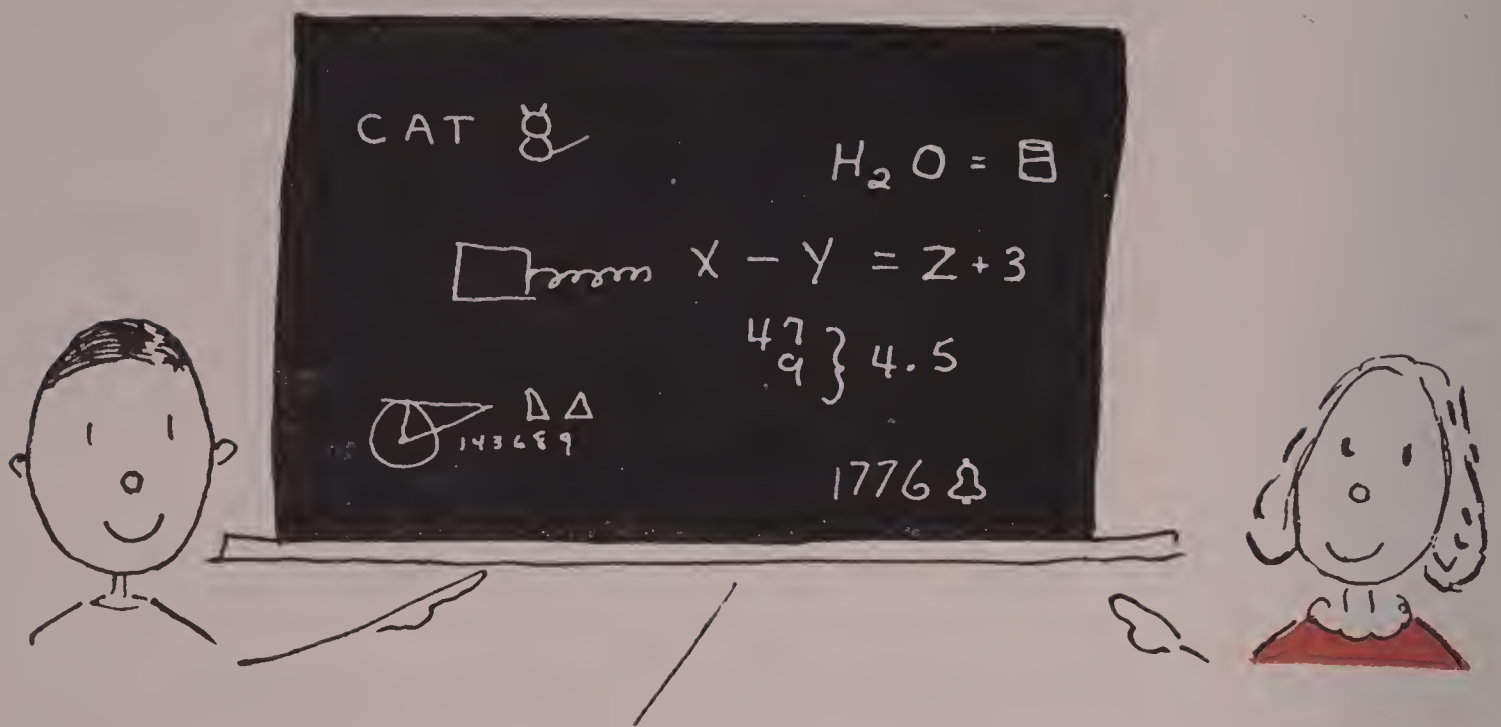 CAT
H₂O =
X - Y = Z + 3
47
9 } 4.5
143689
1776